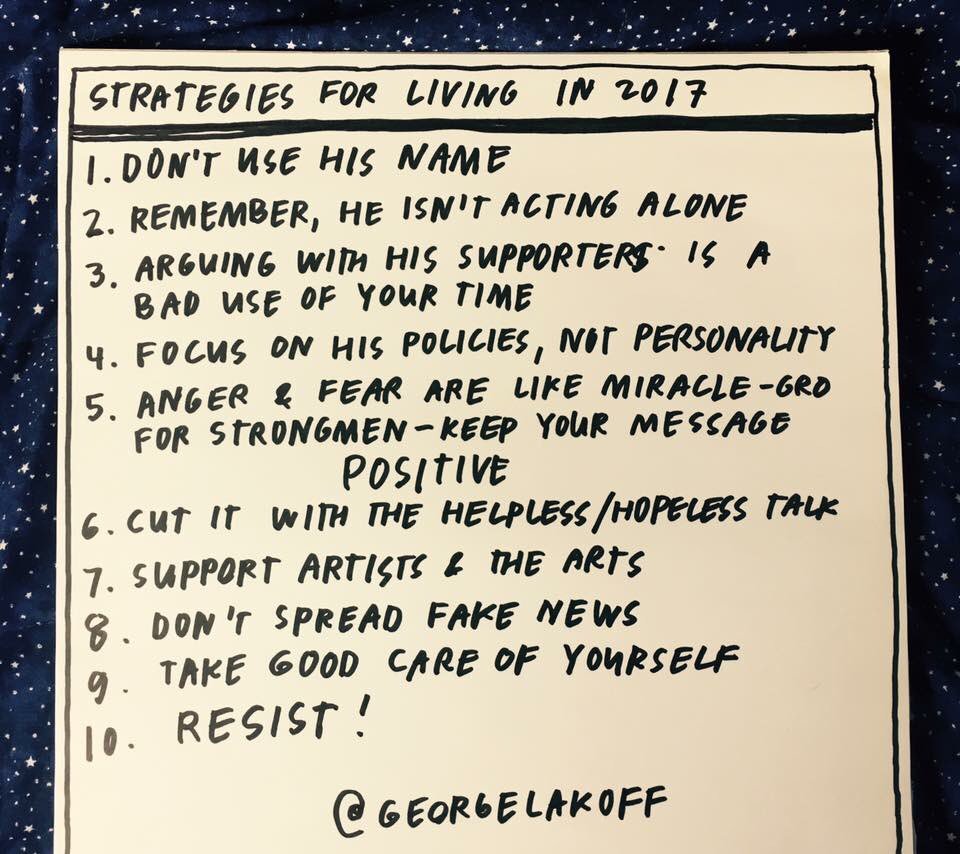 STRATEGIES FOR LIVING IN 2017
1. DON'T USE HIS NAME
2. REMEMBER, HE ISN'T ACTING ALONE
3. ARGUING WITH HIS SUPPORTERS IS A
BAD USE OF YOUR TIME
4. FOCUS ON HIS POLICIES, NOT PERSONALITY
5. ANGER & FEAR ARE LIKE MIRACLE-GRO
FOR STRONGMEN - KEEP YOUR MESSAGE
POSITIVE
6. CUT IT WITH THE HELPLESS/HOPELESS TALK
7. SUPPORT ARTISTS & THE ARTS
8. DON'T SPREAD FAKE NEWS
9. TAKE GOOD CARE OF YOURSELF
10. RESIST!
@GEORGELAKOFF